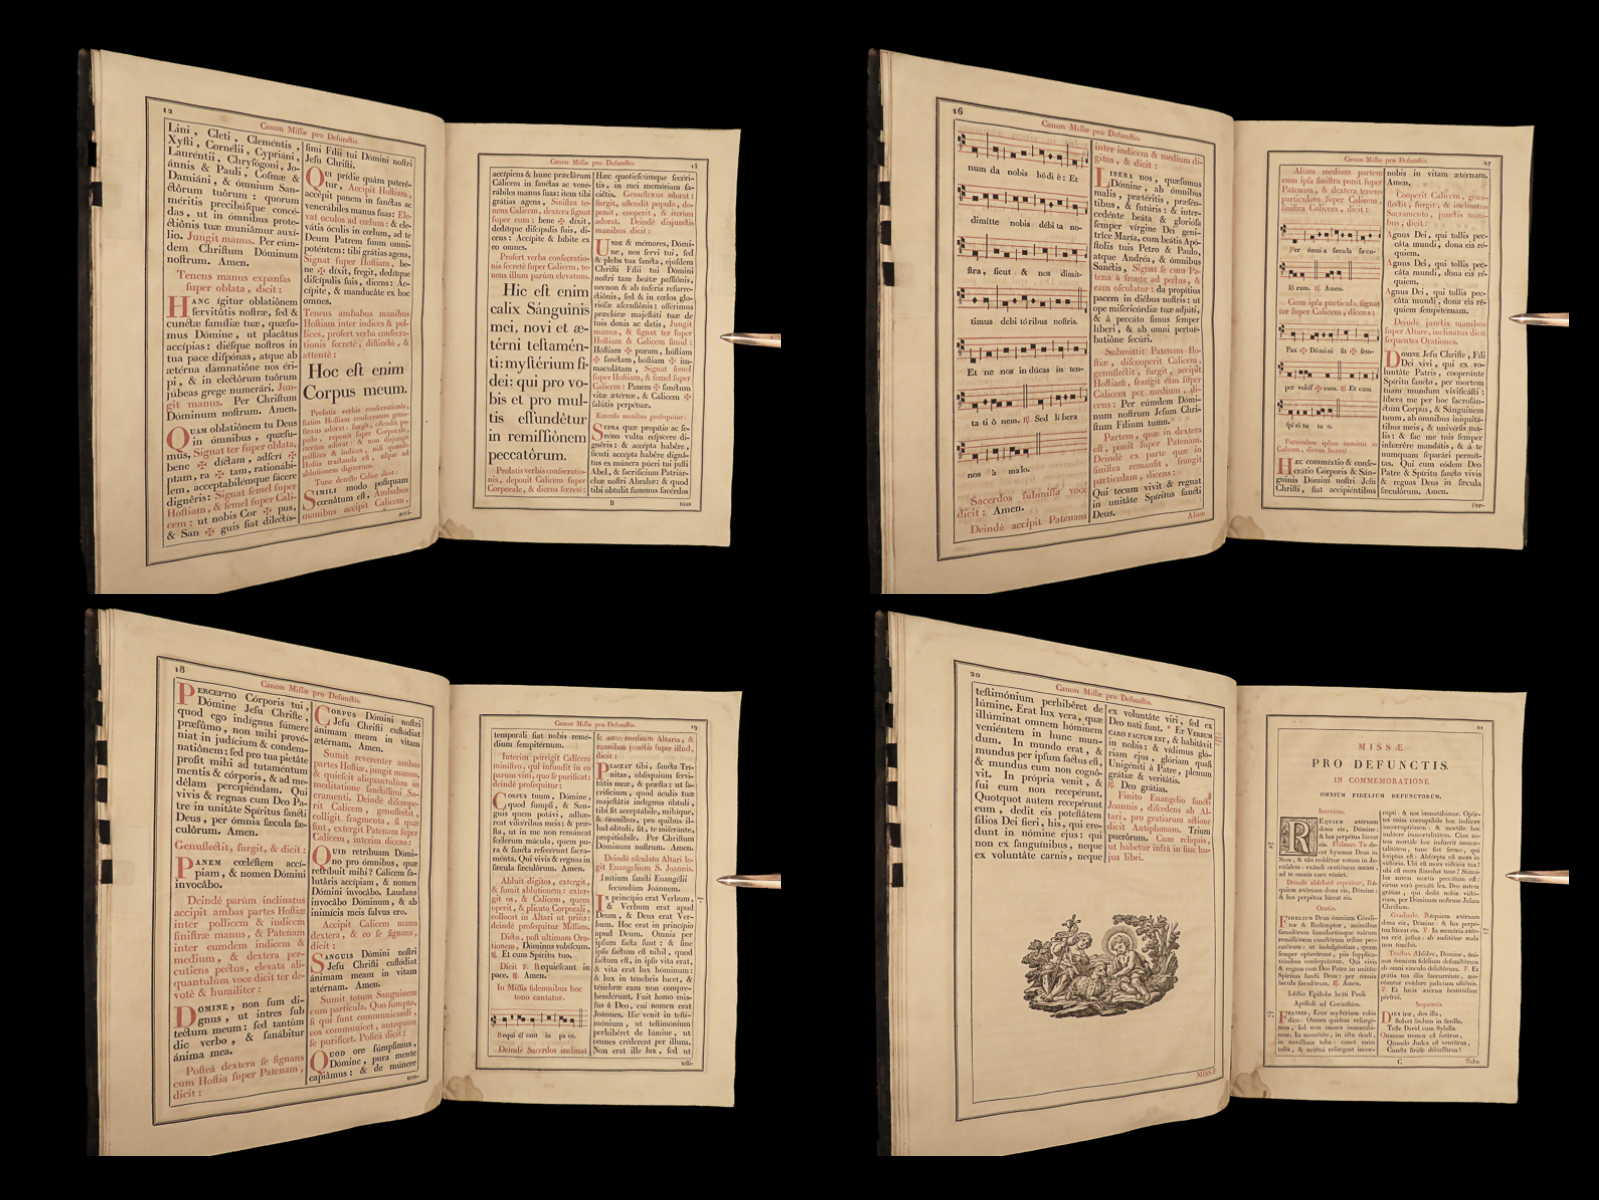 12
Canon Missæ pro Defunctis.
Lini, Cleti, Cleméntis,
Xysti, Cornélii, Cypriáni,
Lauréntii, Chrysógoni, Jo-
ánnis & Pauli, Cosmæ &
Damiáni, & ómnium San-
ctórum tuórum : quorum
méritis precibúsque concé-
das, ut in ómnibus prote-
ctiónis tuæ muniámur auxí-
lio. Jungit manus. Per eúm-
dem Christum Dóminum
nostrum. Amen.
Tenens manus expansas
super oblata, dicit :
HANC ígitur oblatiónem
servitútis nostræ, sed &
cunctæ famíliæ tuæ, quæsu-
mus Dómine, ut placátus
accípias : diésque nostros in
tua pace dispónas, atque ab
ætérna damnatióne nos éri-
pi, & in electórum tuórum
júbeas grege numerári. Jun-
git manus. Per Christum
Dóminum nostrum. Amen.
QUAM oblatiónem tu Deus
in ómnibus, quæsu-
mus, Signat ter super oblata,
bene ✠ díctam, adscrí ✠
ptam, ra ✠ tam, rationábi-
lem, acceptabilémque fácere
dignéris : Signat semel super
Hostiam, & semel super Cali-
cem : ut nobis Cor ✠ pus,
& San ✠ guis fiat dilectís-
simi Fílii tui Dómini nostri
Jesu Christi.
QUI prídie quàm pateré-
tur, Accipit Hostiam,
accépit panem in sanctas ac
venerábiles manus suas: Ele-
vat oculos ad cœlum : & ele-
vátis óculis in cœlum, ad te
Deum Patrem suum omni-
poténtem: tibi grátias agens,
Signat super Hostiam, be-
ne ✠ díxit, fregit, dedítque
discípulis suis, dicens: Ac-
cípite, & manducáte ex hoc
omnes.
Tenens ambabus manibus
Hostiam inter indices & pol-
lices, profert verba consecra-
tionis secretè, distinctè, &
attentè :
Hoc est enim
Corpus meum.
Prolatis verbis consecrationis,
statim Hostiam consecratam genu-
flexus adorat : surgit, ostendit po-
pulo, reponit super Corporale,
iterum adorat : & non disjungit
pollices & indices, nisi quando
Hostia tractanda est, usque ad
ablutionem digitorum.
Tunc detecto Calice dicit:
SIMILI modo postquam
cœnátum est, Ambabus
manibus accipit Calicem,
acci-
Canon Missæ pro Defunctis
13
accípiens & hunc præclárum
Cálicem in sanctas ac vene-
rábiles manus suas: item tibi
grátias agens, Sinistra te-
nens Calicem, dextera signat
super eum : bene ✠ díxit,
dedítque discípulis suis, di-
cens : Accípite & bíbite ex
eo omnes.
Profert verba consecratio-
nis secretè super Calicem, te-
nens illum parùm elevatum.
Hic est enim
calix Sánguinis
mei, novi et æ-
térni testamén-
ti: mystérium fí-
dei: qui pro vo-
bis et pro mul-
tis effundétur
in remissiónem
peccatórum.
Prolatis verbis consecratio-
nis, deponit Calicem super
Corporale, & dicens secretè:
Hæc quotiescúmque fecéri-
tis, in mei memóriam fa-
ciétis. Genuflexus adorat:
surgit, ostendit populo, de-
ponit, cooperit, & iterùm
adorat. Deinde disjunctis
manibus dicit:
UNDE & mémores, Dómi-
ne, nos servi tui, sed
& plebs tua sancta, ejúsdem
Christi Fílii tui Dómini
nostri tam beátæ passiónis,
necnon & ab ínferis resurre-
ctiónis, sed & in cœlos glo-
riósæ ascensiónis: offérimus
præcláræ majestáti tuæ de
tuis donis ac datis, Jungit
manus, & signat ter super
Hostiam & Calicem simul:
Hóstiam ✠ puram, hóstiam
✠ sanctam, hóstiam ✠ im-
maculátam, Signat semel
super Hostiam, & semel super
Calicem : Panem ✠ sanctum
vitæ ætérnæ, & Cálicem ✠
salútis perpétuæ.
Extensis manibus prosequitur:
SUPRA quæ propítio ac se-
réno vultu respícere di-
gnéris : & accépta habére,
sicuti accépta habére digná-
tus es múnera púeri tui justi
Abel, & sacrifícium Patriár-
chæ nostri Abrahæ: & quod
tibi óbtulit summus sacérdos
B
tuus
16
Canon Missæ pro Defunctis.
num da nobis hódi è: Et
dimítte nobis débi ta no-
stra, sicut & nos dimít-
timus debi tóribus nostris.
Et ne nos in dúcas in ten-
ta ti ó nem. ℟. Sed lí bera
nos à malo.
Sacerdos submissa voce
dicit : Amen.
Deindè accipit Patenam
inter indicem & medium di-
gitos, & dicit :
LIBERA nos, quæsumus
Dómine, ab ómnibus
malis, prætéritis, præsén-
tibus, & futúris : & inter-
cedénte beáta & gloriósa
semper vírgine Dei geni-
trice María, cum beátis Apó-
stolis tuis Petro & Paulo,
atque Andréa, & ómnibus
Sanctis, Signat se cum Pa-
tena à fronte ad pectus, &
eam osculatur : da propítius
pacem in diébus nostris : ut
ope misericórdiæ tuæ adjúti,
& à peccáto simus semper
líberi, & ab omni pertur-
batióne secúri.
Submittit Patenam Ho-
stiæ, discooperit Calicem,
genuflectit, surgit, accipit
Hostiam, frangit eam super
Calicem per medium, di-
cens : Per eúmdem Dómi-
num nostrum Jesum Chri-
stum Fílium tuum.
Partem, quæ in dextera
est, ponit super Patenam.
Deindè ex parte quæ in
sinistra remansit, frangit
particulam, dicens :
Qui tecum vivit & regnat
in unitáte Spíritus sancti
Deus.
Aliam
Canon Missæ pro Defunctis
17
Aliam mediam partem
cum ipsa sinistra ponit super
Patenam, & dextera tenens
particulam super Calicem,
sinistra Calicem, dicit :
Per ómni a sæcula sæcu-
ló rum. ℟. Amen.
Cum ipsa particula signat
ter super Calicem, dicens :
Pax ✠ Dómini sit ✠ sem-
per vobíf ✠ cum. ℟. Et cum
spí ri tu tu o.
Particulam ipsam immittit in
Calicem, dicens secretè :
HÆC commíxtio & conse-
crátio Córporis & Sán-
guinis Dómini nostri Jesu
Christi, fiat accipiéntibus
nobis in vitam ætérnam.
Amen.
Cooperit Calicem, genu-
flectit, surgit, & inclinatus
Sacramento, junctis mani-
bus, dicit :
Agnus Dei, qui tollis pec-
cáta mundi, dona eis ré-
quiem.
Agnus Dei, qui tollis pec-
cáta mundi, dona eis ré-
quiem.
Agnus Dei, qui tollis pec-
cáta mundi, dona eis ré-
quiem sempitérnam.
Deindè junctis manibus
super Altare, inclinatus dicit
sequentes Orationes.
DOMINE Jesu Christe, Fili
Dei vivi, qui ex vo-
luntáte Patris, cooperánte
Spíritu sancto, per mortem
tuam mundum vivificásti :
líbera me per hoc sacrosán-
ctum Corpus, & Sánguinem
tuum, ab ómnibus iniquitá-
tibus meis, & univérsis ma-
lis : & fac me tuis semper
inhærére mandátis, & à te
numquam separári permít-
tas. Qui cum eódem Deo
Patre & Spíritu sancto vivis
& regnas Deus in sæcula
sæculórum. Amen.
Per-
18
Canon Missæ pro Defunctis.
PERCEPTIO Córporis tui,
Dómine Jesu Christe,
quod ego indígnus súmere
præsúmo, non mihi prové-
niat in judícium & condem-
natiónem: sed pro tua pietáte
prosit mihi ad tutaméntum
mentis & córporis, & ad me-
délam percipiéndam. Qui
vivis & regnas cum Deo Pa-
tre in unitáte Spíritus sancti
Deus, per ómnia sæcula sæ-
culórum. Amen.
Genuflectit, surgit, & dicit :
PANEM cœléstem accí-
piam, & nomen Dómini
invocábo.
Deindè parùm inclinatus
accipit ambas partes Hostiæ
inter pollicem & indicem
sinistræ manus, & Patenam
inter eumdem indicem &
medium, & dextera per-
cutiens pectus, elevata ali-
quantulùm voce dicit ter de-
votè & humiliter :
DOMINE, non sum di-
gnus, ut intres sub
tectum meum : sed tantùm
dic verbo, & sanábitur
ánima mea.
Posteà dextera se signans
cum Hostia super Patenam,
dicit :
CORPUS Dómini nostri
Jesu Christi custódiat
ánimam meam in vitam
ætérnam. Amen.
Sumit reverenter ambas
partes Hostiæ, jungit manus,
& quiescit aliquantulùm in
meditatione sanctissimi Sa-
cramenti. Deindè discoope-
rit Calicem, genuflectit,
colligit fragmenta, si quæ
sint, extergit Patenam super
Calicem, interim dicens :
QUID retríbuam Dómi-
no pro ómnibus, quæ
retríbuit mihi ? Cálicem sa-
lutáris accípiam, & nomen
Dómini invocábo. Laudans
invocábo Dóminum, & ab
inimícis meis salvus ero.
Accipit Calicem manu
dextera, & eo se signans,
dicit :
SANGUIS Dómini nostri
Jesu Christi custódiat
ánimam meam in vitam
ætérnam. Amen.
Sumit totum Sanguinem
cum particula. Quo sumpto,
si qui sunt communicandi,
eos communicet, antequam
se purificet. Posteà dicit :
QUOD ore súmpsimus,
Dómine, pura mente
capiámus : & de múnere
tem-
Canon Missæ pro Defunctis
19
temporáli fiat nobis remé-
dium sempitérnum.
Interim porrigit Calicem
ministro, qui infundit in eo
parum vini, quo se purificat:
deindè prosequitur :
CORPUS tuum, Dómine,
quod sumpsi, & San-
guis quem potávi, adhæ-
reat viscéribus meis : & præ-
sta, ut in me non remáneat
scélerum mácula, quem pu-
ra & sancta refecérunt sacra-
ménta. Qui vivis & regnas in
sæcula sæculórum. Amen.
Abluit digitos, extergit,
& sumit ablutionem : exter-
git os, & Calicem, quem
operit, & plicato Corporali,
collocat in Altari ut priùs :
deindè prosequitur Missam.
Dicto, post ultimam Ora-
tionem, Dóminus vobíscum.
℟. Et cum Spíritu tuo.
Dicit ℣. Requiéscant in
pace. ℟. Amen.
In Missis solemnibus hoc
tono cantatur.
Requi és cant in pa ce.
Deindè Sacerdos inclinat
se ante medium Altaris, &
manibus junctis super illud,
dicit :
PLACEAT tibi, sancta Trí-
nitas, obséquium servi-
tútis meæ, & præsta : ut sa-
crifícium, quod óculis tuæ
majestátis indígnus óbtuli,
tibi sit acceptábile, mihíque,
& ómnibus, pro quibus il-
lud óbtuli, sit, te miseránte,
propitiábile. Per Christum
Dóminum nostrum. Amen.
Deindè osculato Altari le-
git Evangelium S. Joannis.
Inítium sancti Evangélii
secúndùm Joánnem.
IN princípio erat Verbum,
& Verbum erat apud
Deum, & Deus erat Ver-
bum. Hoc erat in princípio
apud Deum. Omnia per
ipsum facta sunt : & sine
ipso factum est nihil, quod
factum est, in ipso vita erat,
& vita erat lux hóminum :
& lux in ténebris lucet, &
ténebræ eam non compre-
hendérunt. Fuit homo mis-
sus à Deo, cui nomen erat
Joánnes. Hic venit in testi-
mónium, ut testimónium
perhibéret de lúmine, ut
omnes créderent per illum.
Non erat ille lux, sed ut
testi-
20
Canon Missæ pro Defunctis.
testimónium perhibéret de
lúmine. Erat lux vera, quæ
illúminat omnem hóminem
veniéntem in hunc mun-
dum. In mundo erat, &
mundus per ipsum factus est,
& mundus eum non cognó-
vit. In própria venit, &
sui eum non recepérunt.
Quotquot autem recepérunt
eum, dedit eis potestátem
fílios Dei fíeri, his, qui cre-
dunt in nómine ejus : qui
non ex sanguínibus, neque
ex voluntáte carnis, neque
ex voluntáte viri, sed ex
Deo nati sunt. * ET VERBUM
CARO FACTUM EST, & habitávit
in nobis : & vídimus gló-
riam ejus, glóriam quasi
Unigéniti à Patre, plenum
grátiæ & veritátis.
℟. Deo grátias.
Finito Euangelio sancti
Joannis, discedens ab Al-
tari, pro gratiarum actione
dicit Antiphonam. Trium
puerórum. Cum reliquis,
ut habetur infrà in fine hu-
jus libri.
MISSÆ
21
MISSÆ
PRO DEFUNCTIS.
IN COMMEMORATIONE
OMNIUM FIDELIUM DEFUNCTORUM.
Introitus.
REQUIEM ætérnam
dona eis, Dómine :
& lux perpétua lúceat
eis. Psalmus. Te de-
cet hymnus Deus in
Sion, & tibi reddétur votum in Je-
rúsalem : exáudi oratiónem meam,
ad te omnis caro véniet.
Deindè absolutè repetitur, Ré-
quiem ætérnam dona eis, Dómine :
& lux perpétua lúceat eis.
Oratio.
FIDELIUM Deus ómnium Cóndi-
tor & Redémptor, animábus
famulórum famularúmque tuárum
remissiónem cunctórum tríbue pec-
catórum : ut indulgéntiam, quam
semper optavérunt, piis supplica-
tiónibus consequántur. Qui vivis
& regnas cum Deo Patre in unitáte
Spíritus sancti Deus : per ómnia
sæcula sæculórum. ℟. Amen.
Léctio Epístolæ beáti Pauli
Apóstoli ad Corínthios.
FRATRES, Ecce mystérium vobis
dico : Omnes quidem resurgé-
mus, sed non omnes immutábi-
mur. In moménto, in ictu óculi,
in novíssima tuba : canet enim
tuba, & mórtui resúrgent incor-
rúpti : & nos immutábimur. Opór-
tet enim corruptíbile hoc indúere
incorruptiónem : & mortále hoc
indúere immortalitátem. Cùm au-
tem mortále hoc indúerit immor-
talitátem, tunc fiet sermo, qui
scriptus est : Absórpta est mors in
victória. Ubi est mors victória tua ?
ubi est mors stímulus tuus ? Stímu-
lus autem mortis peccátum est :
virtus verò peccáti lex. Deo autem
grátias, qui dedit nobis victó-
riam, per Dóminum nostrum Jesum
Christum.
Graduale. Réquiem ætérnam
dona eis, Dómine : & lux perpé-
tua lúceat eis. ℣. In memória æté-
rna erit justus : ab auditióne mala
non timébit.
Tractus. Absólve, Dómine, áni-
mas ómnium fidélium defunctórum
ab omni vínculo delictórum. ℣. Et
grátia tua illis succurrénte, me-
reántur evádere judícium ultiónis.
℣. Et lucis ætérnæ beatitúdine
pérfrui.
Sequentia.
DIES iræ, dies illa,
Solvet sæclum in favílla,
Teste David cum Sybílla.
Quantus tremor est futúrus,
Quando Judex est ventúrus,
Cuncta strictè discussúrus !
C
Tuba